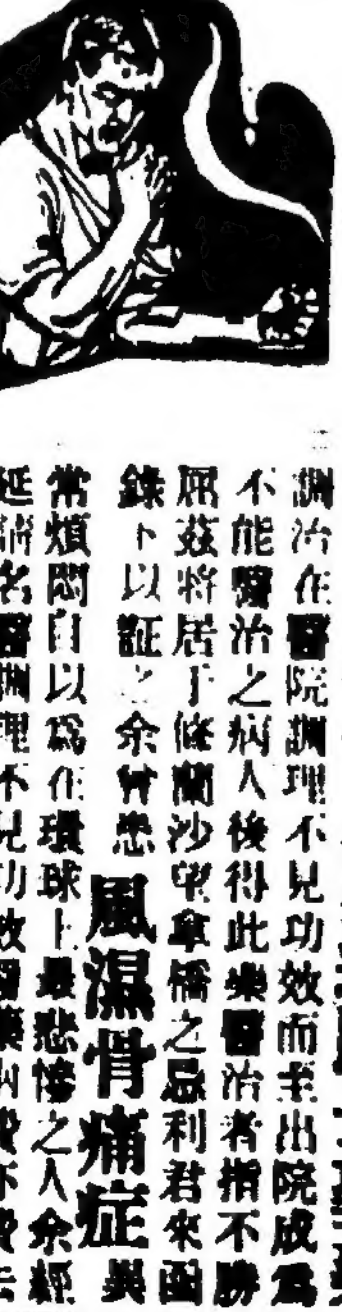 調治在醫院調理不見功效而至出院成為
不能醫治之病人後得此藥醫治者指不勝
屈茲將居于倫蘭沙望車橋之忌利君來函
錄下以証之余曾患風濕骨痛症異
常煩悶自以為在環球上最悲慘之人余經
延請名醫調理不見功效